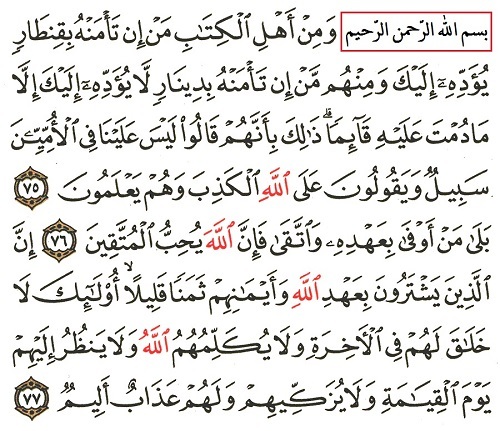 بسم الله الرّحمن الرّحيم وَمِنْ أَهْلِ ٱلْكِتَٰبِ مَنْ إِن تَأْمَنْهُ بِقِنطَارٍ
يُؤَدِّهِۦٓ إِلَيْكَ وَمِنْهُم مَّنْ إِن تَأْمَنْهُ بِدِينَارٍ لَّا يُؤَدِّهِۦٓ إِلَيْكَ إِلَّا
مَا دُمْتَ عَلَيْهِ قَآئِمًا ۗ ذَٰلِكَ بِأَنَّهُمْ قَالُوا۟ لَيْسَ عَلَيْنَا فِى ٱلْأُمِّيِّـۧنَ
سَبِيلٌ وَيَقُولُونَ عَلَى ٱللَّهِ ٱلْكَذِبَ وَهُمْ يَعْلَمُونَ ٧٥
بَلَىٰ مَنْ أَوْفَىٰ بِعَهْدِهِۦ وَٱتَّقَىٰ فَإِنَّ ٱللَّهَ يُحِبُّ ٱلْمُتَّقِينَ ٧٦ إِنَّ
ٱلَّذِينَ يَشْتَرُونَ بِعَهْدِ ٱللَّهِ وَأَيْمَٰنِهِمْ ثَمَنًا قَلِيلًا ۙ أُو۟لَٰٓئِكَ لَا
خَلَٰقَ لَهُمْ فِى ٱلْأَخِرَةِ وَلَا يُكَلِّمُهُمُ ٱللَّهُ وَلَا يَنظُرُ إِلَيْهِمْ
يَوْمَ ٱلْقِيَٰمَةِ وَلَا يُزَكِّيهِمْ وَلَهُمْ عَذَابٌ أَلِيمٌ ٧٧